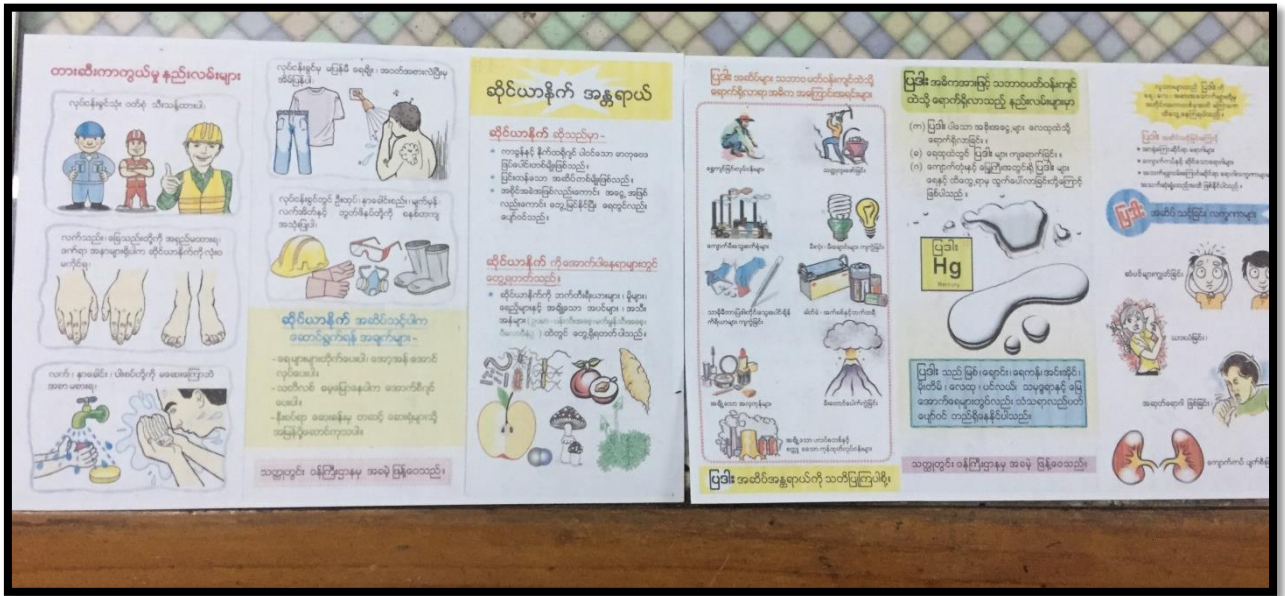 တားဆီးကာကွယ်မှု နည်းလမ်းများ
လုပ်ငန်းခွင်သုံး ဝတ်စုံ သီးသန့်ထားပါ၊
လက်သည်း၊ ခြေသည်းတို့ကို အရှည်မထားရ၊
ဒဏ်ရာ အနာများရှိပါက ဆိုင်ယာနိုက်ကို လုံးဝ
မကိုင်ရ၊
လက်၊ နှာခေါင်း၊ ပါးစပ်တို့ကို မဆေးကြောဘဲ
အစာ မစားရ၊
လုပ်ငန်းခွင်မှ မပြန်မီ ရေချိုး၊ အဝတ်အစားလဲပြီးမှ
အိမ်ပြန်ပါ၊
လုပ်ငန်းခွင်တွင် ဦးထုပ်၊ နှာခေါင်းစည်း၊ မျက်မှန်
လက်အိတ်နှင့် ဘွတ်ဖိနပ်တို့ကို စနစ်တကျ
အသုံးပြုပါ၊
ဆိုင်ယာနိုက် အဆိပ်သင့်ပါက
ဆောင်ရွက်ရန် အချက်များ -
- ရေများများတိုက်ပေးပါ၊ အော့အန် အောင်
လုပ်ပေးပါ။
- သတိလစ် မေ့မြောနေပါက အောက်စီဂျင်
ပေးပါ။
- နီးစပ်ရာ ဆေးခန်းမှ တဆင့် ဆေးရုံများသို့
အမြန်ပို့ဆောင်ကုသပါ။
သတ္တုတွင်း ဝန်ကြီးဌာနမှ အခမဲ့ ဖြန့်ဝေသည်။
ဆိုင်ယာနိုက် အန္တရာယ်
ဆိုင်ယာနိုက် ဆိုသည်မှာ -
* ကာဗွန်နှင့် နိုက်ထရိုဂျင် ပါဝင်သော ဓာတုဗေဒ
ဖြစ်ပေါင်းတစ်မျိုးဖြစ်သည်။
* ပြင်းထန်သော အဆိပ်တစ်မျိုးဖြစ်သည်။
* အစိုင်အခဲအဖြစ်လည်းကောင်း အငွေ့ အဖြစ်
လည်းကောင်း တွေ့မြင်နိုင်ပြီး ရေတွင်လည်း
ပျော်ဝင်သည်။
ဆိုင်ယာနိုက် ကိုအောက်ပါနေရာများတွင်
တွေ့ရတတ်သည်။
* ဆိုင်ယာနိုက်ကို ဘက်တီးရီးယားများ၊ မှိုများ၊
ရေညှိများနှင့် အချို့သော အပင်များ၊ အသီး
အနှံများ ထဲတွင် တွေ့ရှိရတတ်ပါသည်။
ပြဒါး အဆိပ်များ သဘာဝပတ်ဝန်းကျင်ထဲသို့
ရောက်ရှိလာရာ အဓိက အကြောင်းအရင်းများ
ရွှေကျင်ခြင်းလုပ်ငန်းများ
သတ္တုတူးဖော်ခြင်း
ကျောက်မီးသွေးစက်ရုံများ
မီးလုံး၊ မီးချောင်းများ ကျကွဲခြင်း
ဓါတ်ခဲ၊ ဘက်ထရီ
မီးတောင်ပေါက်ကွဲခြင်း
အချို့သော အလှကုန်များ
ပြဒါး အဆိပ်အန္တရာယ်ကို သတိပြုကြပါစို့။
ပြဒါး အဓိကအားဖြင့် သဘာဝပတ်ဝန်းကျင်
ထဲသို့ ရောက်ရှိလာသည့် နည်းလမ်းများမှာ
(က) ပြဒါး ပါသော အခိုးအငွေ့များ လေထုထဲသို့
ရောက်ရှိလာခြင်း၊
(ခ) ရေထုထဲတွင် ပြဒါး များ ကျရောက်ခြင်း၊
(ဂ) ကျောက်တုံးနှင့် မြေကြီးအတွင်းရှိ ပြဒါး များ
ရေနှင့် ထိတွေ့ရာမှ ထွက်ပေါ်လာခြင်းတို့ကြောင့်
ဖြစ်ပါသည်။
ပြဒါး
Hg
Mercury
ပြဒါး သည် မြစ်၊ ချောင်း၊ ရေကန်၊ အင်းအိုင်၊
မိုးတိမ်၊ လေထု၊ ပင်လယ်၊ သမုဒ္ဒရာနှင့် မြေ
အောက်ရေများတွင်လည်း သံသရာလည်ပတ်
ပျော်ဝင် တည်ရှိနေနိုင်ပါသည်။
သတ္တုတွင်း ဝန်ကြီးဌာနမှ အခမဲ့ ဖြန့်ဝေသည်။
ပြဒါး အဆိပ် သင့်ခြင်း လက္ခဏာများ
ဆံပင်များကျွတ်ခြင်း
ယားယံခြင်း၊
အဆုတ်ရောဂါ ဖြစ်ခြင်း၊